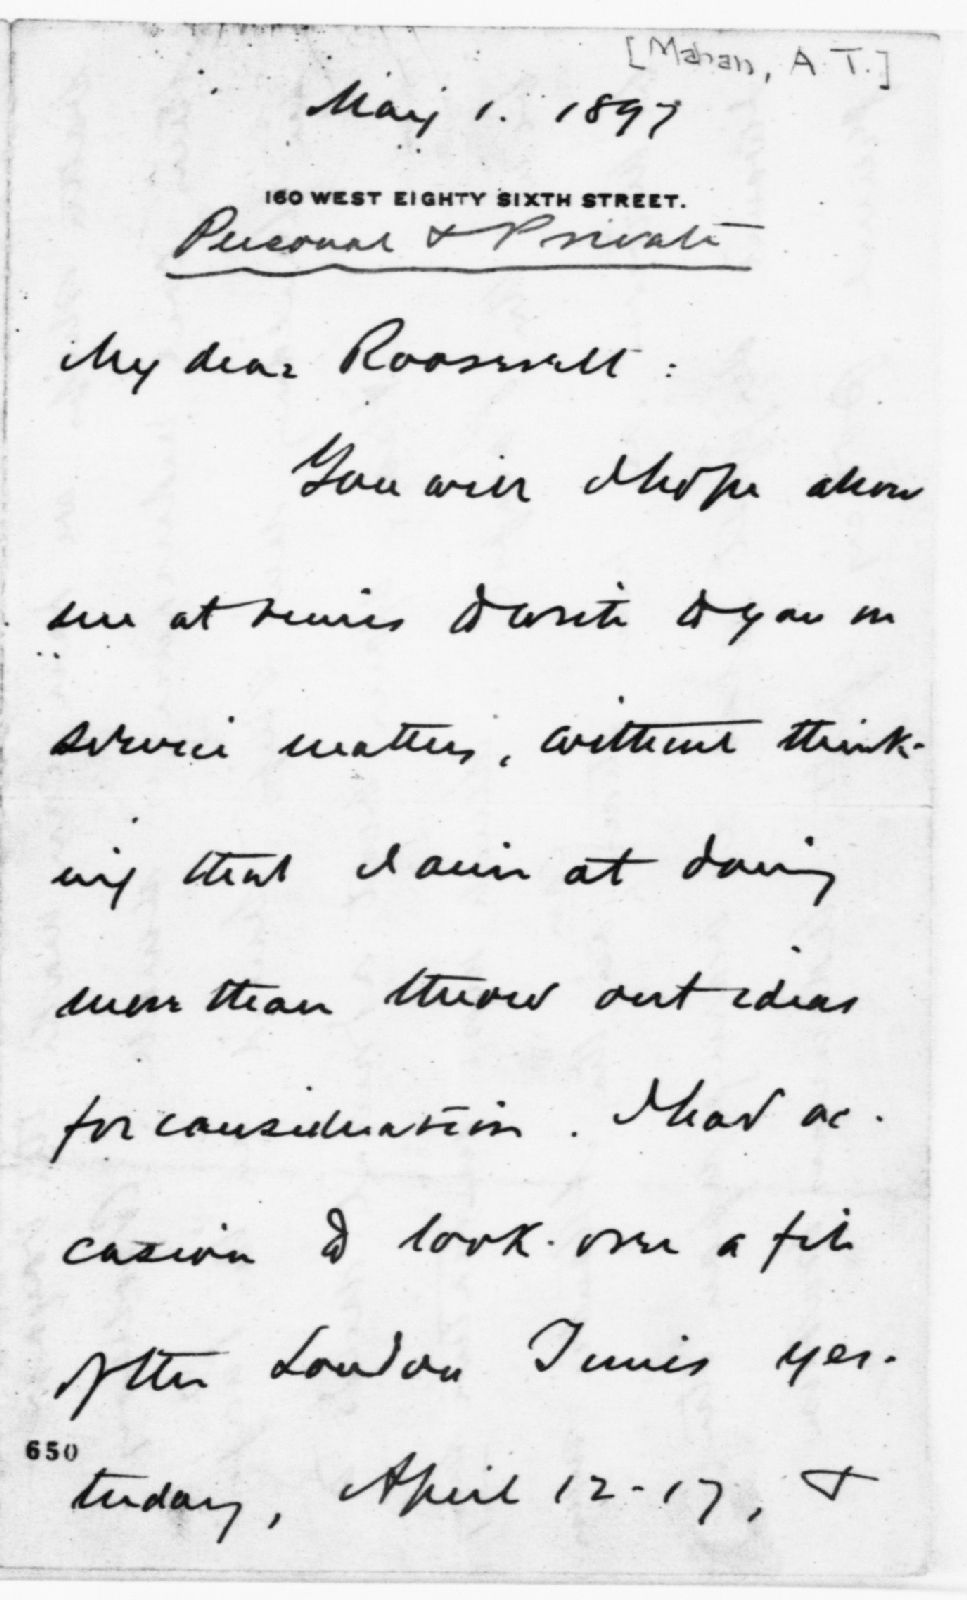 [Mahan, A. T.]
May 1. 1897
160 WEST EIGHTY SIXTH STREET.
Personal & Private
My dear Roosevelt :
You will I hope allow
me at times to write to you on
service matters, without think-
ing that I aim at doing
more than throw out ideas
for consideration. I had oc-
casion to look over a file
of the London Times yes-
650
terday, April 12-17, &